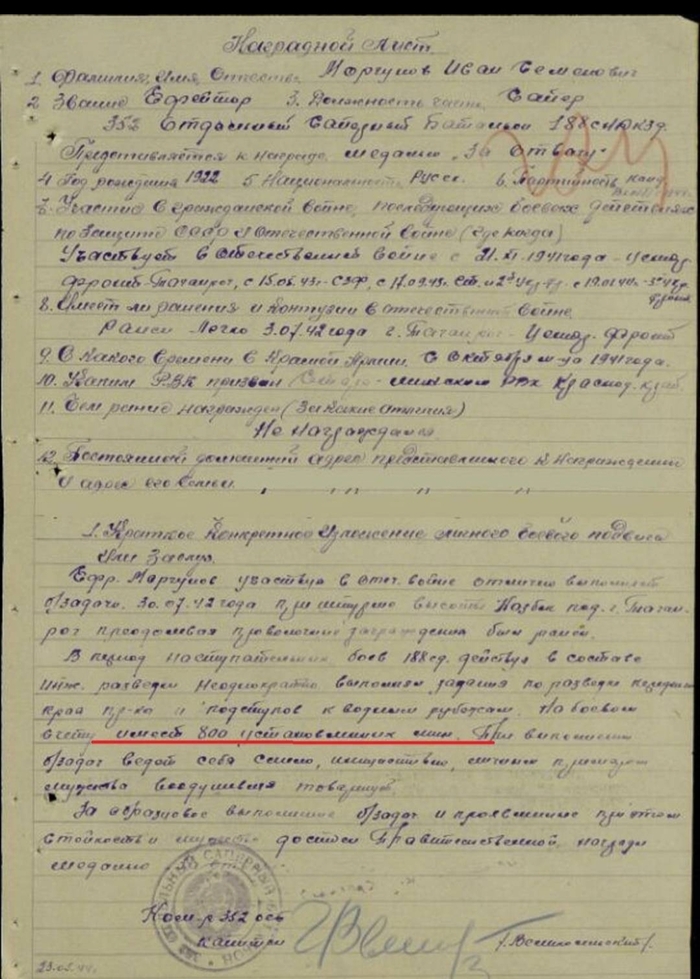 Наградной лист
1. Фамилия, Имя, Отчество Моргунов Иван Семенович
2. Звание Ефрейтор 3. Должность часть Сапер
352 Отдельный Саперный Батальон 188 с.д.
Представляется к награде медалью "За Отвагу"
4. Год рождения 1922 5. Национальность Русск. 6. Партийность канд.
7. Участие в гражданской войне, последующих боевых действиях
по защите СССР и отечественной войне (где когда)
Участвует в Отечественной войне с 21.XI.1941 года -
фронт Таганрог, с 15.05.43г. СЗФ, с 17.09.43г. Ст. и 2й Укр. фр. - с 19.01.44г. - 3й Укр.
фронт
8. Имеет ли ранения и контузии в отечественной войне.
Ранен Легко 3.07.42 года г. Таганрог - фронт
9. С какого времени в Красной Армии. С Октября м-ца 1941 года.
10. Каким РВК призван Старо-Минским РВК Краснод. край.
11. Чем ранее награжден (за какие отличия)
Не награждался
12. Постоянный домашний адрес представляемого к награждению
и адрес его семьи. " " "
1. Краткое конкретное изложение личного боевого подвига
или заслуг.
Ефр. Моргунов участвуя в отеч. войне отлично выполняет
б/задачи. 30.07.42 года при штурме высоты Казбек под г. Таган-
рог преодолевая проволочные заграждения был ранен.
В период наступательных боев 188 сд. действуя в составе
инж. разведки неоднократно выполнял задания по разведке переднего
края пр-ка и подступов к водным рубежам. На боевом
счету имеет 800 установленных мин. При выполнении
б/задач ведет себя смело, инициативно, личным примером
мужества воодушевляя товарищей.
За образцовое выполнение б/задач и проявленные при этом
стойкость и мужество достоин Правительственной награды
медалью
Ком-р 352 осб
капитан
/Великосельский/
23.05.44г.